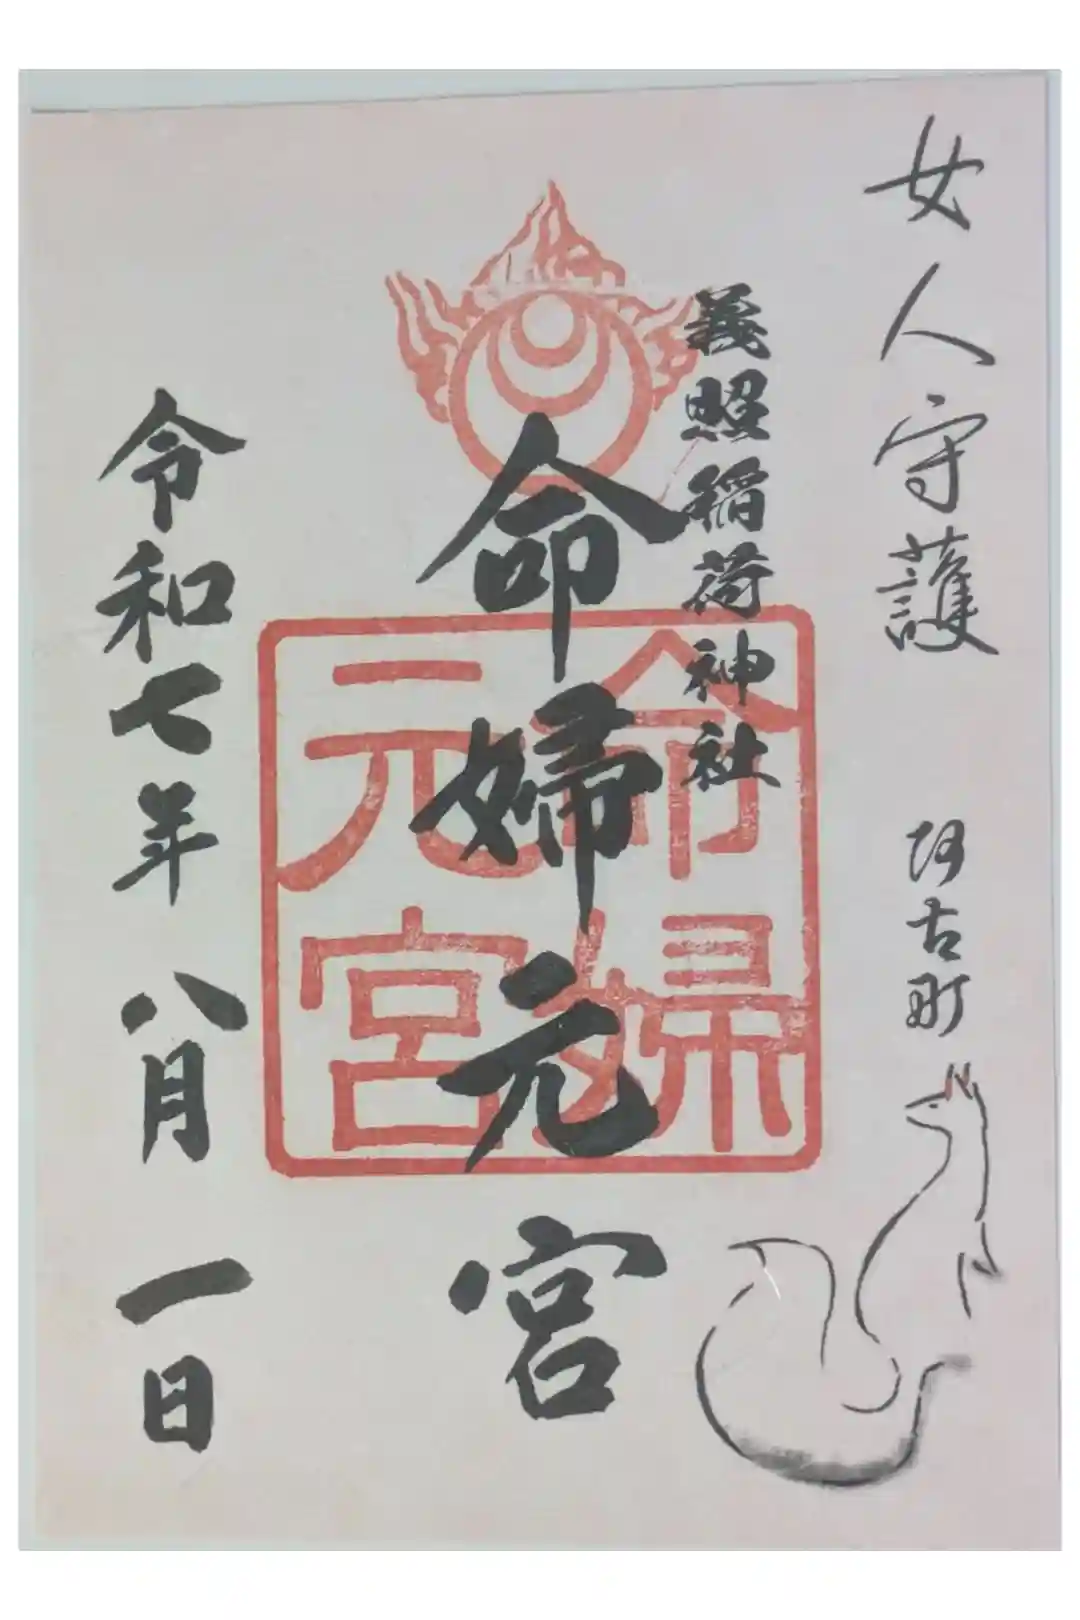 女人守護 阿古町
義照稲荷神社
命婦元宮
命婦
元宮
令和七年八月一日